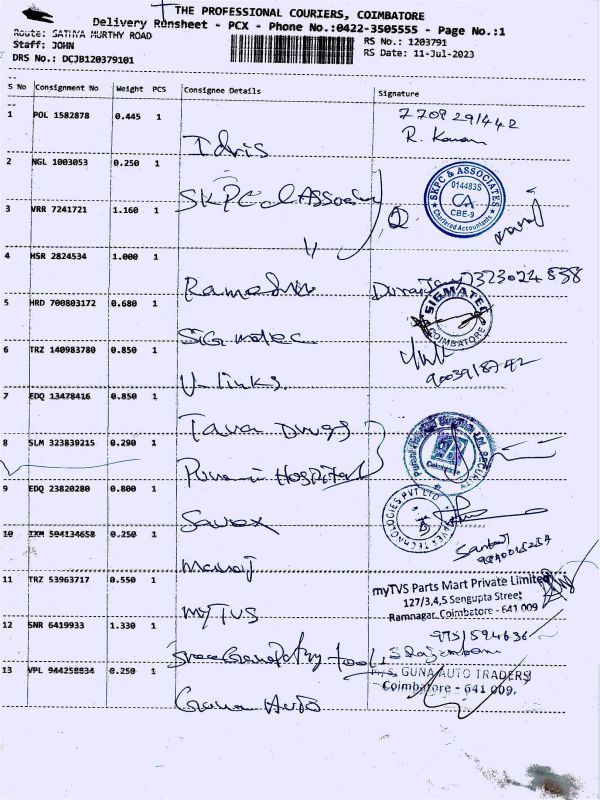 THE PROFESSIONAL COURIERS, COIMBATORE
Delivery Runsheet - PCX - Phone No.:0422-3505555 - Page No.:1
Route: SATHYA MURTHY ROAD
RS No.: 1203791
Staff: JOHN
RS Date: 11-Jul-2023
DRS No.: DCJB120379101
S No Consignment No Weight PCS Consignee Details Signature
1 POL 1582878 0.445 1 Idris
R. Kannan
2 NGL 1003053 0.250 1 SKPC & Associ
SKPC & ASSOCIATES
014483S
CA
CBE-9
Chartered Accountants
3 VRR 7241721 1.160 1 "
4 HSR 2824534 1.000 1
7373024838
5 HRD 700803172 0.680 1
SIGMATEC
COIMBATORE
6 TRZ 140983780 0.850 1 U-links
7 EDQ 13478416 0.850 1 Tara Drugs
8 SLM 323839215 0.290 1 Hospital
SECURITY
Coimbatore
9 EDQ 23820280 0.800 1 Savex
SAVEX TECHNOLOGIES PVT LTD
10 IXM 504134658 0.250 1 Manoj
11 TRZ 53963717 0.550 1 MyTVS
myTVS Parts Mart Private Limited
127/3,4,5 Sengupta Street
Ramnagar, Coimbatore - 641 009
12 SNR 6419933 1.330 1 Sree Ganapathy tools
13 VPL 944258834 0.250 1 Guna Auto
M/S. GUNA AUTO TRADERS
Coimbatore - 641 009.